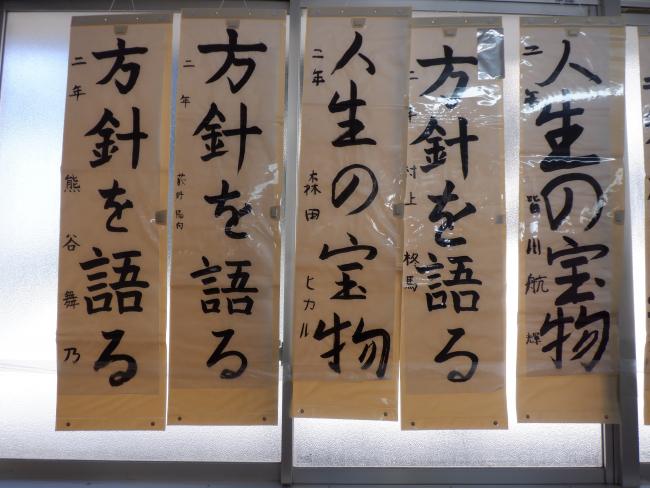 人生の宝物
二年 皆川航輝
方針を語る
二年 村上柊馬
人生の宝物
二年 森田ヒカル
方針を語る
二年
方針を語る
二年 熊谷舞乃